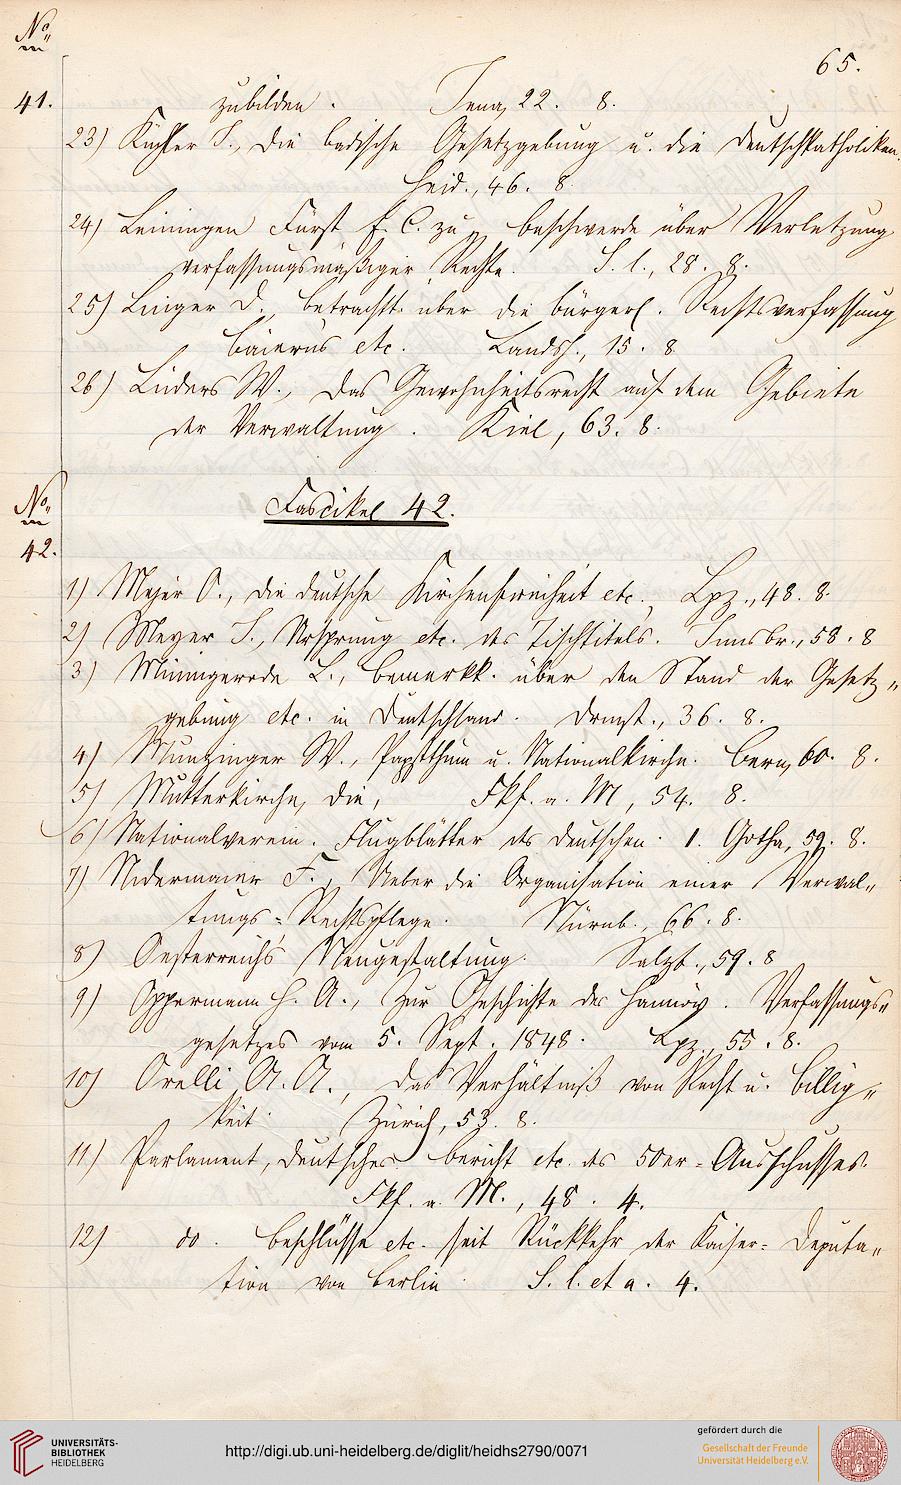 No.
65.
41. zubilden. Jena, 22. 8.
23) Küchler F., die badische Gesetzgebung u. die Deutschkatholiken.
Heid., 46. 8.
24) Leiningen Fürst E. C. zu, Beschwerde über Verletzung
verfassungsmäßiger Rechte. S. l., 28. 8.
25) Leiger D., Betracht. über die bürgerl. Rechtsverfassung
Baierns etc. Landsh., 15. 8.
26) Lüders W., das Gewohnheitsrecht auf dem Gebiete
der Verwaltung. Kiel, 63. 8.
No.
Fascikel 42.
42.
1) Mejer O., die deutsche Kirchenfreiheit etc., Lpz., 48. 8.
2) Meyer J., Ursprung etc. des Tischtitels. Innsbr., 58. 8
3) Minnigerode L., Bemerkk. über den Stand der Gesetz„
gebung etc. in Deutschland. Drmst., 36. 8.
4) Munzinger W., Papstthum u. Nationalkirche. Bern, 60. 8.
5) Mutterkirche, die, Fkf. a. M, 54. 8.
6) Nationalverein. Flugblätter des deutschen. 1. Gotha, 59. 8.
7) Nidermaier F., Ueber die Organisation einer Verwal„
tungs-Rechtspflege. Nürnb., 66. 8.
8) Oesterreichs Neugestaltung. Salzb., 59. 8
9) Oppermann H. A., Zur Geschichte des hannöv. Verfassungs„
gesetzes vom 5. Sept. 1848. Lpz., 55. 8.
10) Orelli A. A., das Verhältniß von Recht u. Billig„
keit. Zürich, 53. 8.
11) Parlament, deutsches. Bericht etc. des 50er-Ausschusses.
Fkf. a. M., 48. 4.
12) do. Beschlüsse etc. seit Rückkehr der Kaiser-Deputa„
tion von Berlin. S. l. et a. 4.
UNIVERSITÄTS-
BIBLIOTHEK
HEIDELBERG
http://digi.ub.uni-heidelberg.de/diglit/heidhs2790/0071
gefördert durch die
Gesellschaft der Freunde
Universität Heidelberg e.V.